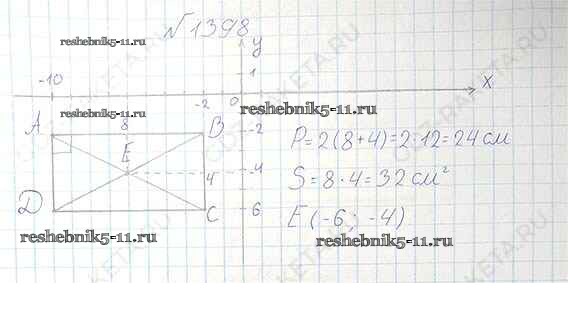 №1398
reshebnik5-11.ru
y
-10
1
-2
0
x
reshebnik5-11.ru
reshebnik5-11.ru
A
8
B
-2
P=2(8+4)=2·12=24 см
E
-4
4
S=8·4=32 см²
D
C
6
E(-6; -4)
reshebnik5-11.ru
reshebnik5-11.ru